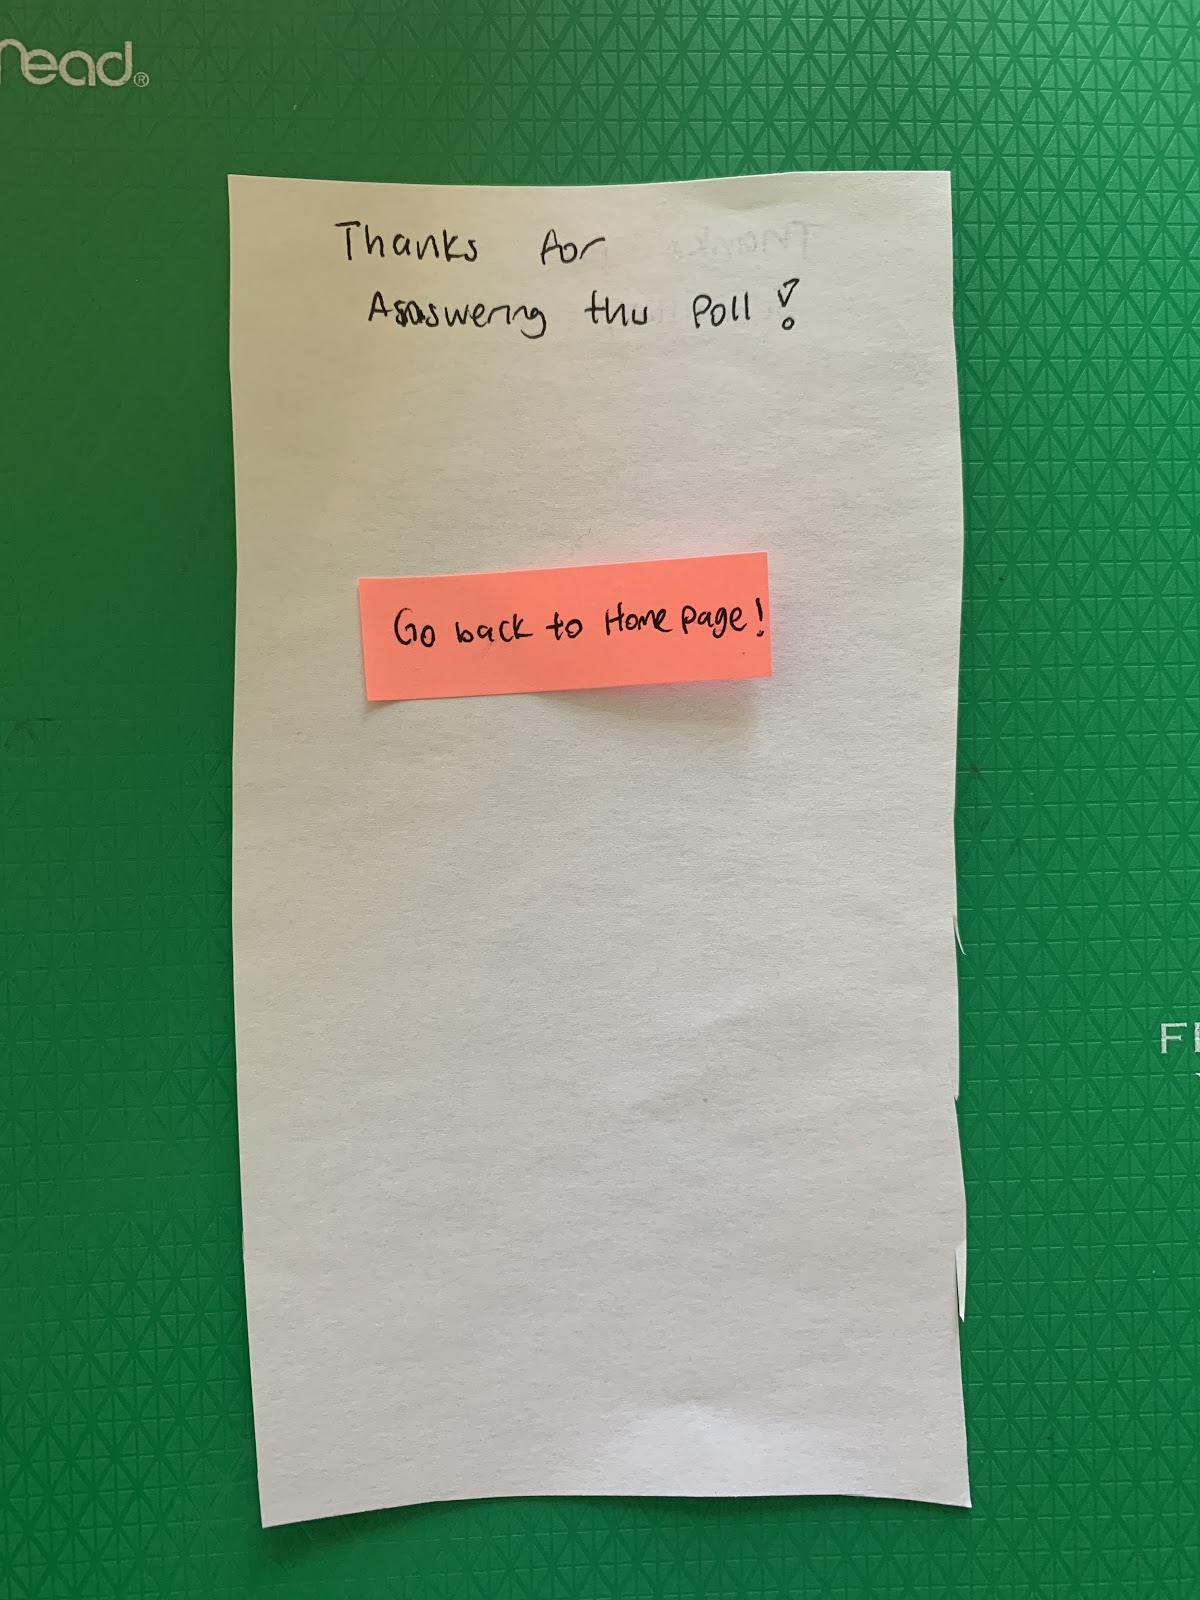 mead®
Thanks for
Asaswering thu Poll!
Go back to Home page!